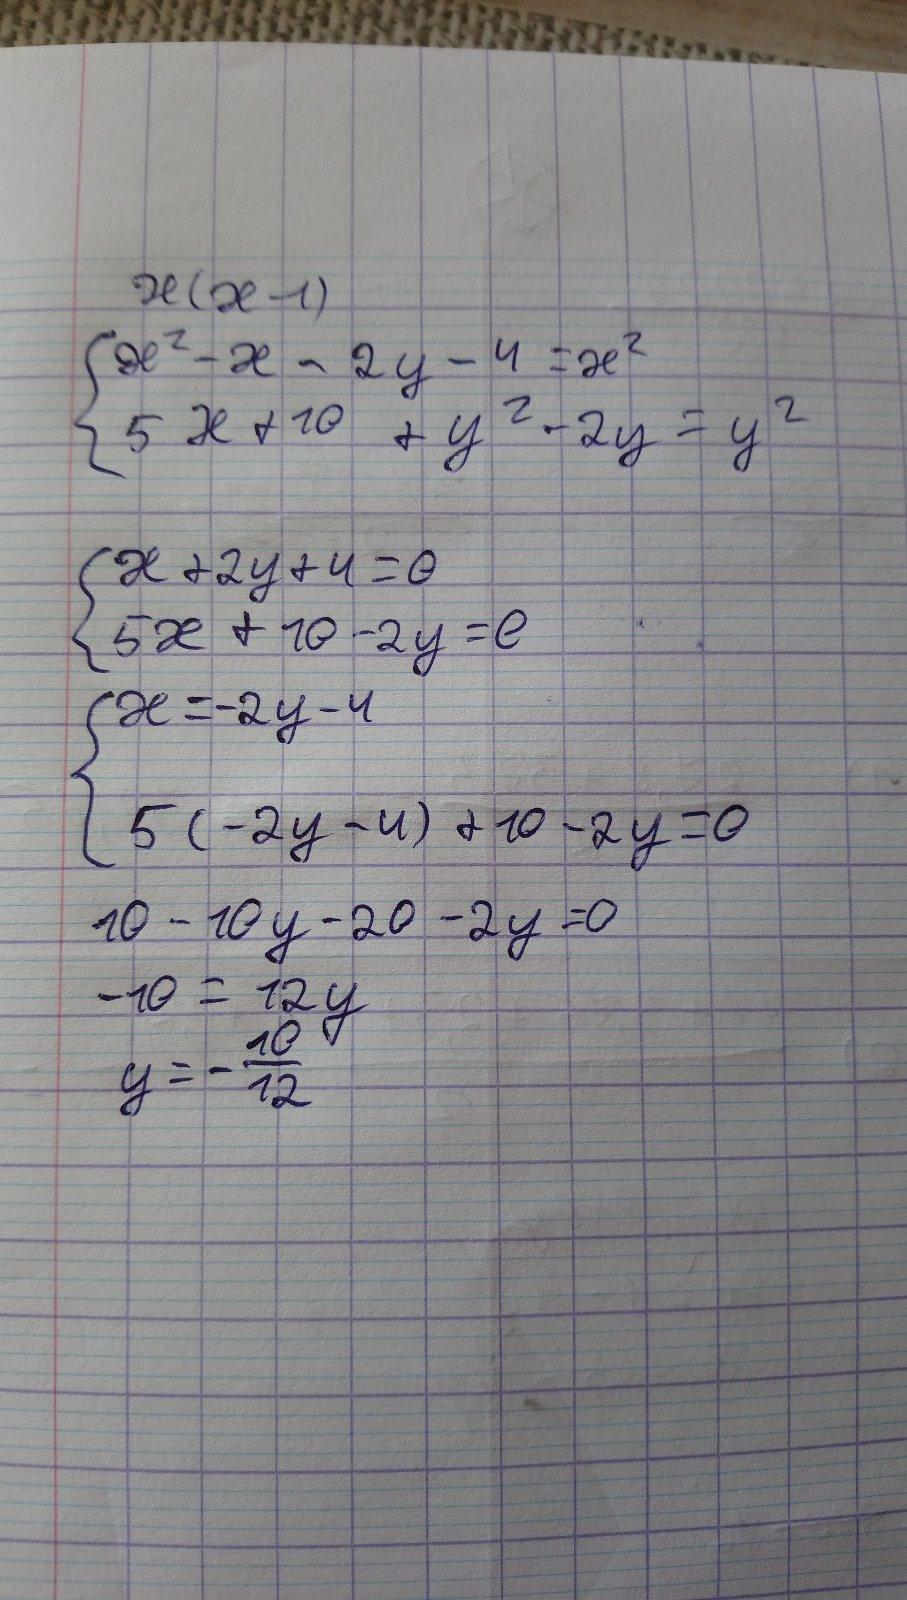 x(x-1)
x² - x - 2y - 4 = x²
5x + 10 + y² - 2y = y²
x + 2y + 4 = 0
5x + 10 - 2y = 0
x = -2y - 4
5(-2y - 4) + 10 - 2y = 0
10 - 10y - 20 - 2y = 0
-10 = 12y
y = -10/12